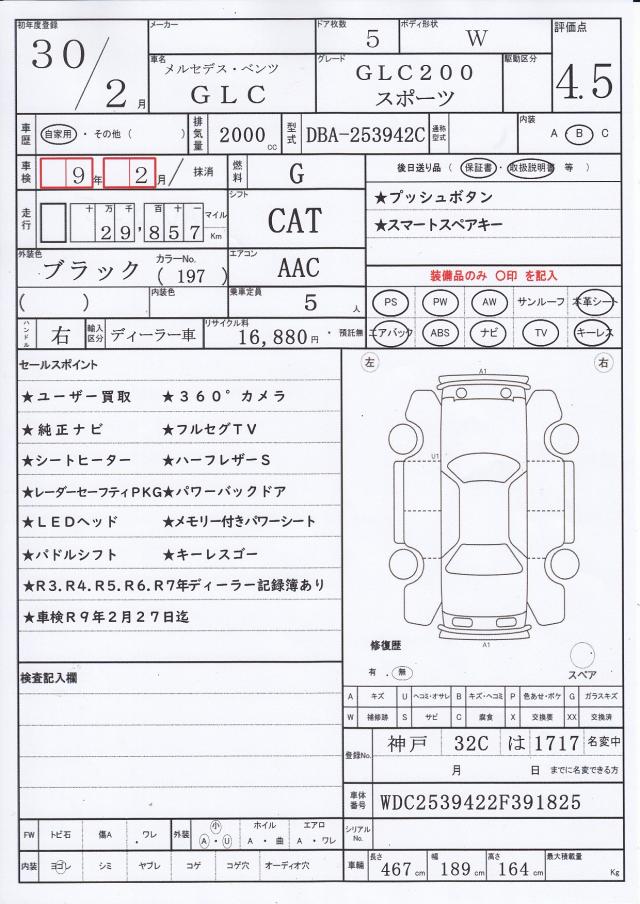 初年度登録 メーカー ドア枚数 5 ボディ形状 W 評価点
30/2月 4.5
車名 メルセデス・ベンツ GLC グレード GLC200 スポーツ 駆動区分
車歴 自家用・その他( ) 排気量 2000cc 型式 DBA-253942C 通称型式 内装 A・B C
車検 9年2月/抹消 燃料 G 後日送り品(保証書・取扱説明書 等)
走行 十万千百十一 29,857 マイル Km シフト CAT
★プッシュボタン
★スマートスペアキー
外装色 ブラック カラーNo.(197) エアコン AAC
( ) 内装色 乗車定員 5人
装備品のみ 〇印 を記入
PS PW AW サンルーフ 本革シート
エアバック ABS ナビ TV キーレス
ハンドル 右 輸入区分 ディーラー車 リサイクル料 16,880円・預託無
セールスポイント
★ユーザー買取 ★360°カメラ
★純正ナビ ★フルセグTV
★シートヒーター ★ハーフレザーS
★レーダーセーフティPKG★パワーバックドア
★LEDヘッド ★メモリー付きパワーシート
★パドルシフト ★キーレスゴー
★R3.R4.R5.R6.R7年ディーラー記録簿あり
★車検R9年2月27日迄
左 A1 右
U1
A1
修復歴
有・無 スペア
検査記入欄
A キズ U ヘコミ・オサレ B キズ・ヘコミ P 色あせ・ボケ G ガラスキズ
W 補修跡 S サビ C 腐食 X 交換要 XX 交換済
登録No. 神戸 32C は 1717 名変中
月 日 までに名変できる方
車体番号 WDC2539422F391825
シリアルNo.
FW トビ石 傷A ・ワレ 外装 小 A・U ホイル A・曲 エアロ A・ワレ
内装 ヨゴレ シミ ヤブレ コゲ コゲ穴 オーディオ穴
車輌 長さ 467cm 幅 189cm 高さ 164cm 最大積載量 Kg